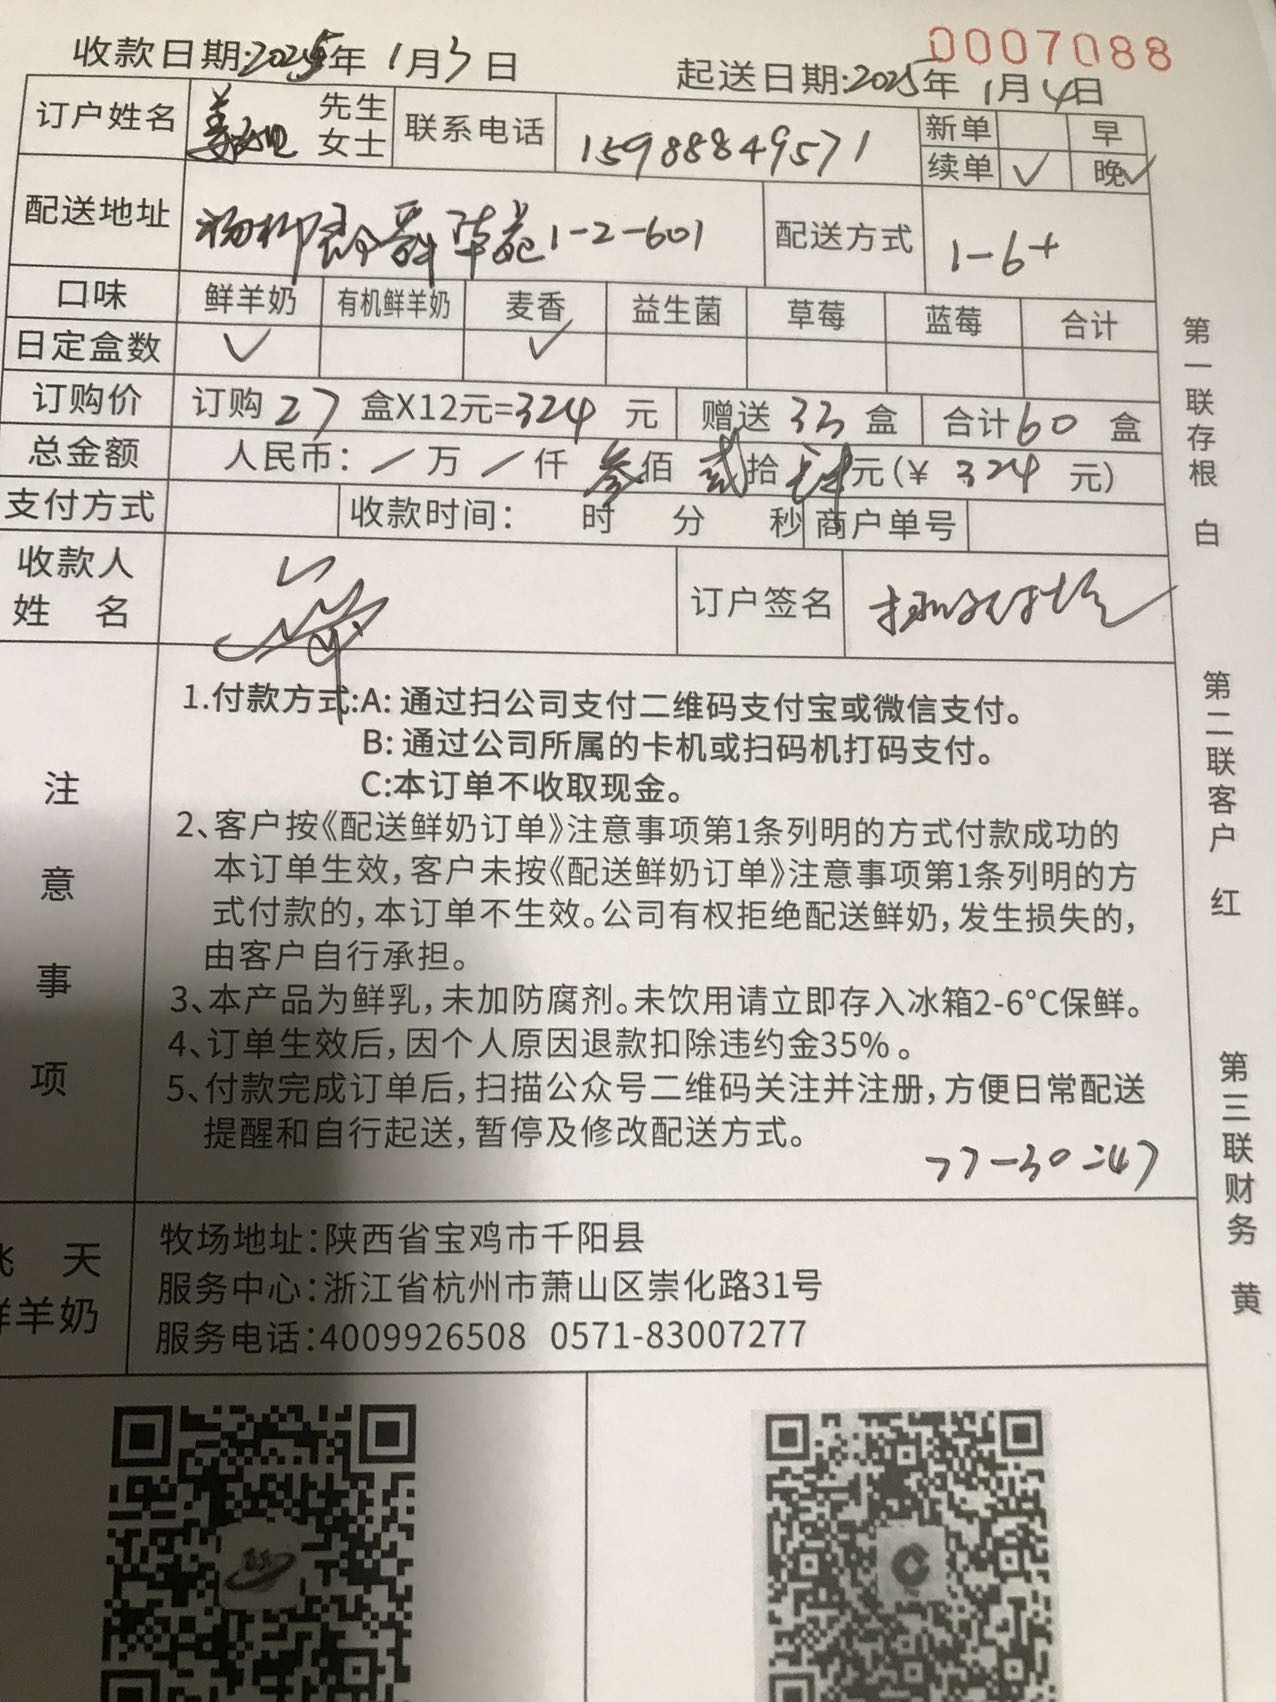 0007088
收款日期:2025年1月3日 起送日期:2025年1月4日
订户姓名 姜 先生 女士 联系电话 15988849571 新单 早
续单 ✓ 晚 ✓
配送地址 杨柳郡 华苑1-2-601 配送方式 1-6+
口味 鲜羊奶 有机鲜羊奶 麦香 益生菌 草莓 蓝莓 合计
日定盒数 ✓ ✓
订购价 订购 27 盒X12元=324 元 赠送 33 盒 合计 60 盒
总金额 人民币: / 万 / 仟 叁佰 贰拾 肆元(¥ 324 元)
支付方式 收款时间: 时 分 秒 商户单号
收款人
姓 名 订户签名
注意事项
1.付款方式:A: 通过扫公司支付二维码支付宝或微信支付。
B: 通过公司所属的卡机或扫码机打码支付。
C:本订单不收取现金。
2、客户按《配送鲜奶订单》注意事项第1条列明的方式付款成功的
本订单生效,客户未按《配送鲜奶订单》注意事项第1条列明的方
式付款的,本订单不生效。公司有权拒绝配送鲜奶,发生损失的,
由客户自行承担。
3、本产品为鲜乳,未加防腐剂。未饮用请立即存入冰箱2-6°C保鲜。
4、订单生效后,因个人原因退款扣除违约金35%。
5、付款完成订单后,扫描公众号二维码关注并注册,方便日常配送
提醒和自行起送,暂停及修改配送方式。
77-30=47
天
羊奶
牧场地址:陕西省宝鸡市千阳县
服务中心:浙江省杭州市萧山区崇化路31号
服务电话:4009926508 0571-83007277
第一联存根 白
第二联客户 红
第三联财务 黄